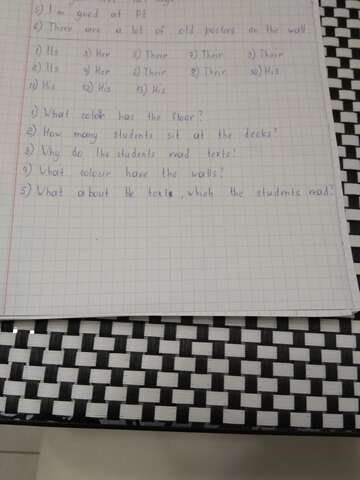 5) I'm good at PE
6) There are a lot of old posters on the wall.
1) Its 3) Her 5) Their 7) Their 9) Their
2) Its 4) Her 6) Their 8) Their 10) His
11) His 12) His 13) His
1) What colour has the floor?
2) How many students sit at the desks?
3) Why do the students read texts?
4) What colour have the walls?
5) What about the texts, which the students read?